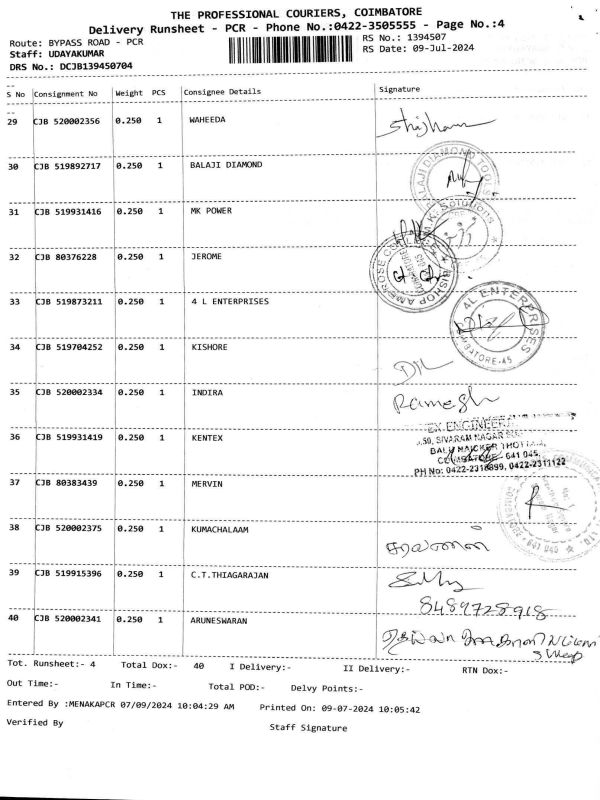 THE PROFESSIONAL COURIERS, COIMBATORE
Delivery Runsheet - PCR - Phone No.:0422-3505555 - Page No.:4
Route: BYPASS ROAD - PCR RS No.: 1394507
Staff: UDAYAKUMAR RS Date: 09-Jul-2024
DRS No.: DCJB139450704
S No Consignment No Weight PCS Consignee Details Signature
29 CJB 520002356 0.250 1 WAHEEDA
30 CJB 519892717 0.250 1 BALAJI DIAMOND
BALAJI DIAMOND TOOLS
31 CJB 519931416 0.250 1 MK POWER
M.K. Solutions
32 CJB 80376228 0.250 1 JEROME
BISHOP AMBROSE
33 CJB 519873211 0.250 1 4 L ENTERPRISES
AL ENTERPRISES
COIMBATORE-45
34 CJB 519704252 0.250 1 KISHORE
35 CJB 520002334 0.250 1 INDIRA
Ramesh
36 CJB 519931419 0.250 1 KENTEX
SIVARAM NAGAR
BALU NAICKER THOTTAM,
COIMBATORE - 641 045.
PH No: 0422-2318899, 0422-2311122
37 CJB 80383439 0.250 1 MERVIN
38 CJB 520002375 0.250 1 KUMACHALAAM
சரவணன்
39 CJB 519915396 0.250 1 C.T.THIAGARAJAN
8489728918
40 CJB 520002341 0.250 1 ARUNESWARAN
Tot. Runsheet:- 4 Total Dox:- 40 I Delivery:- II Delivery:- RTN Dox:-
Out Time:- In Time:- Total POD:- Delvy Points:-
Entered By :MENAKAPCR 07/09/2024 10:04:29 AM Printed On: 09-07-2024 10:05:42
Verified By Staff Signature